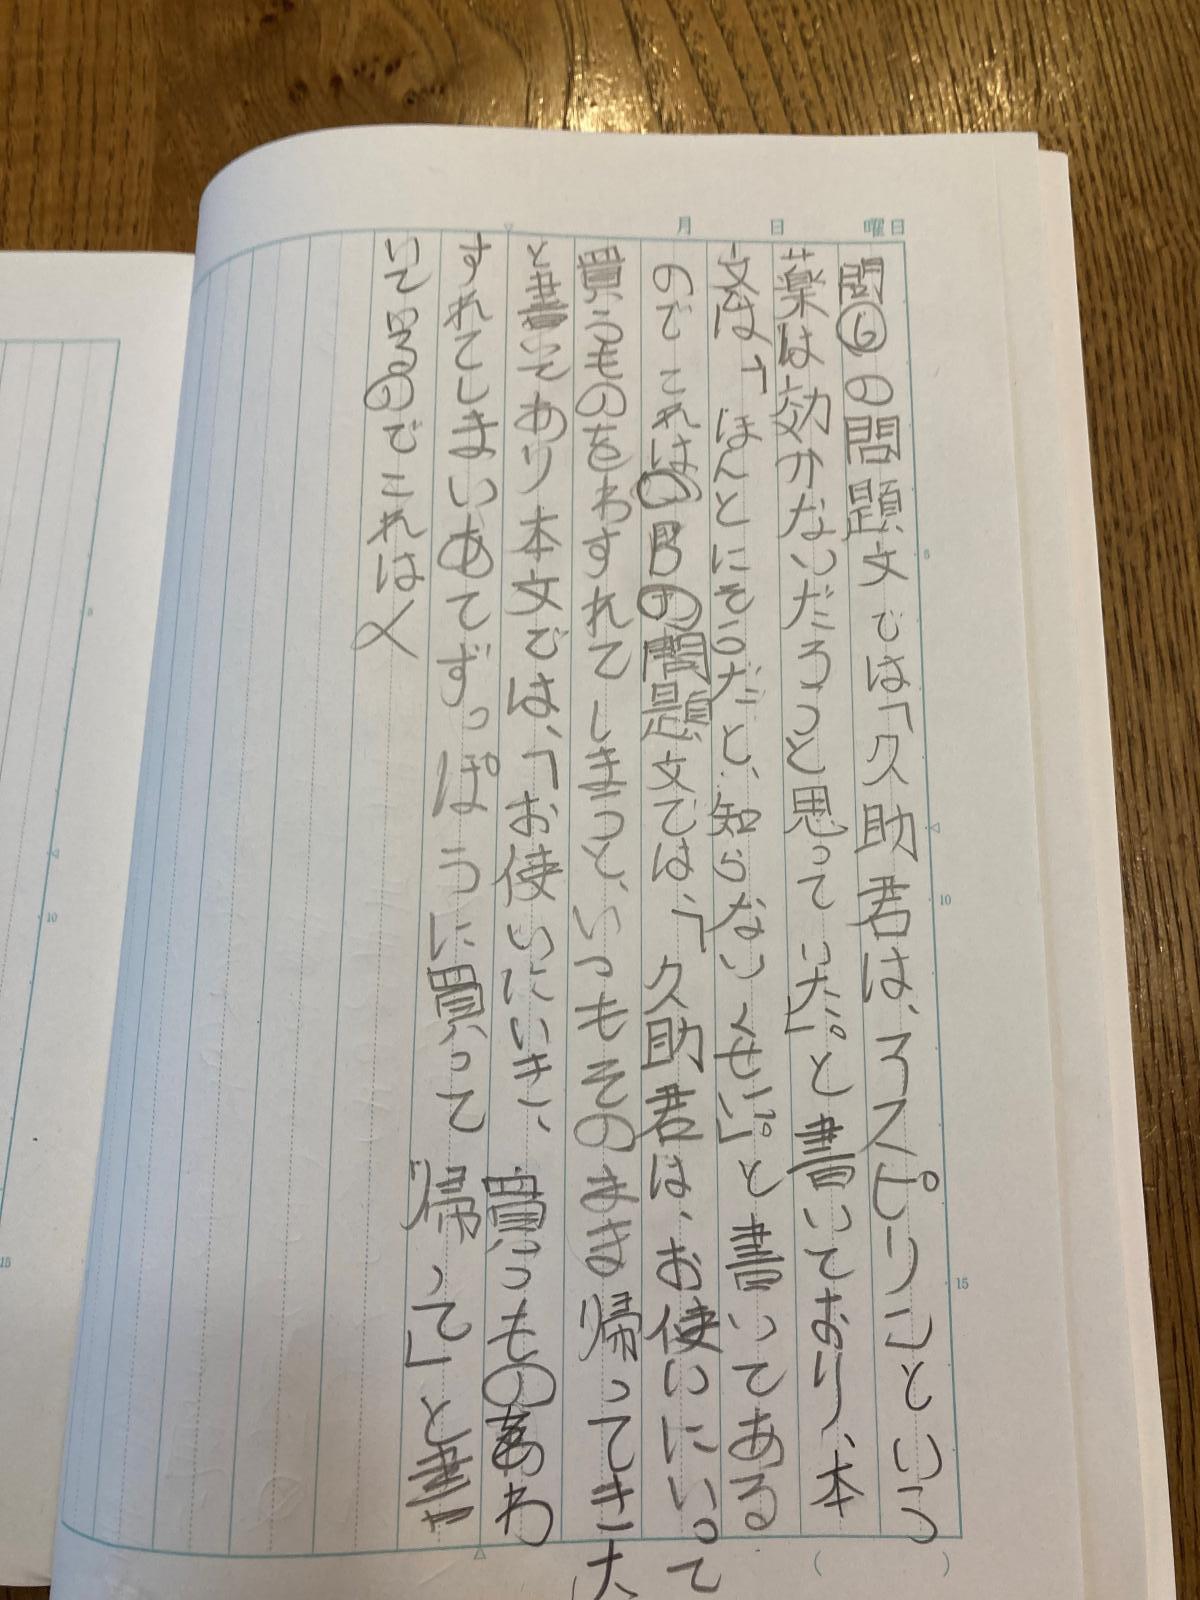 月　日　曜日
問⑥の問題文では「久助君は、アスピリンという
薬は効かないだろうと思っていた。」と書いており、本
文は、「ほんとにそうだと、知らないくせに。」と書いてある
のでこれは〇Bの問題文では、「久助君は、お使いにいって
買うものをわすれてしまうと、いつもそのまま帰ってきた」
と書いてあり本文では、「お使いにいき、買うものをわ
すれてしまいあてずっぽうに買って帰って」と書
いてるのでこれは×
5
10
15
5
10
15